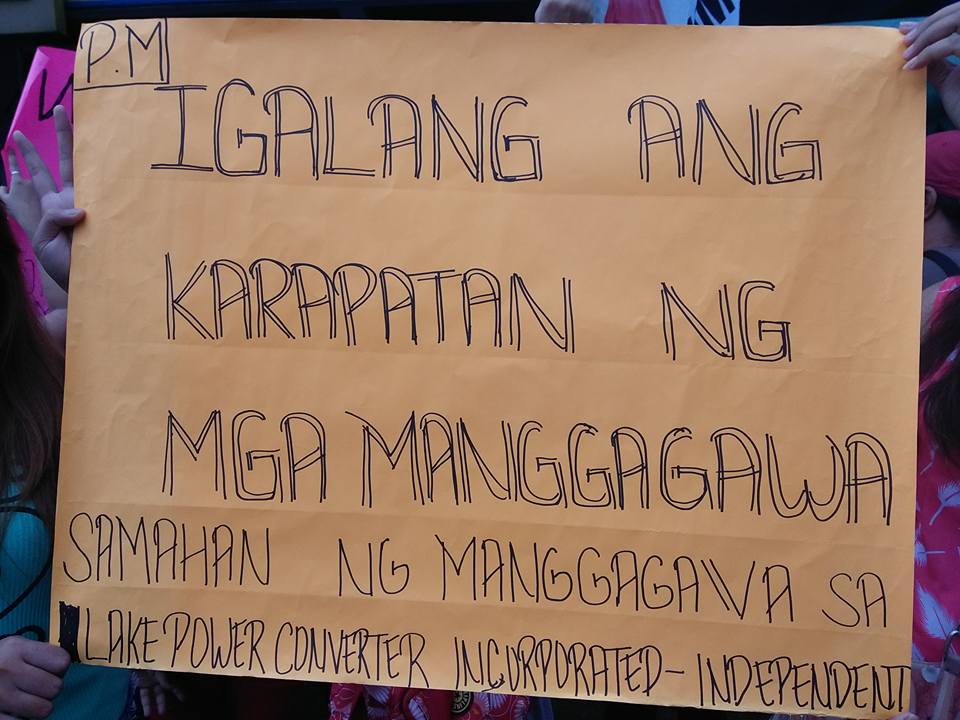 P.M
IGALANG ANG
KARAPATAN NG
MGA MANGGAGAWA
SAMAHAN NG MANGGAGAWA SA
LAKE POWER CONVERTER INCORPORATED - INDEPENDENT